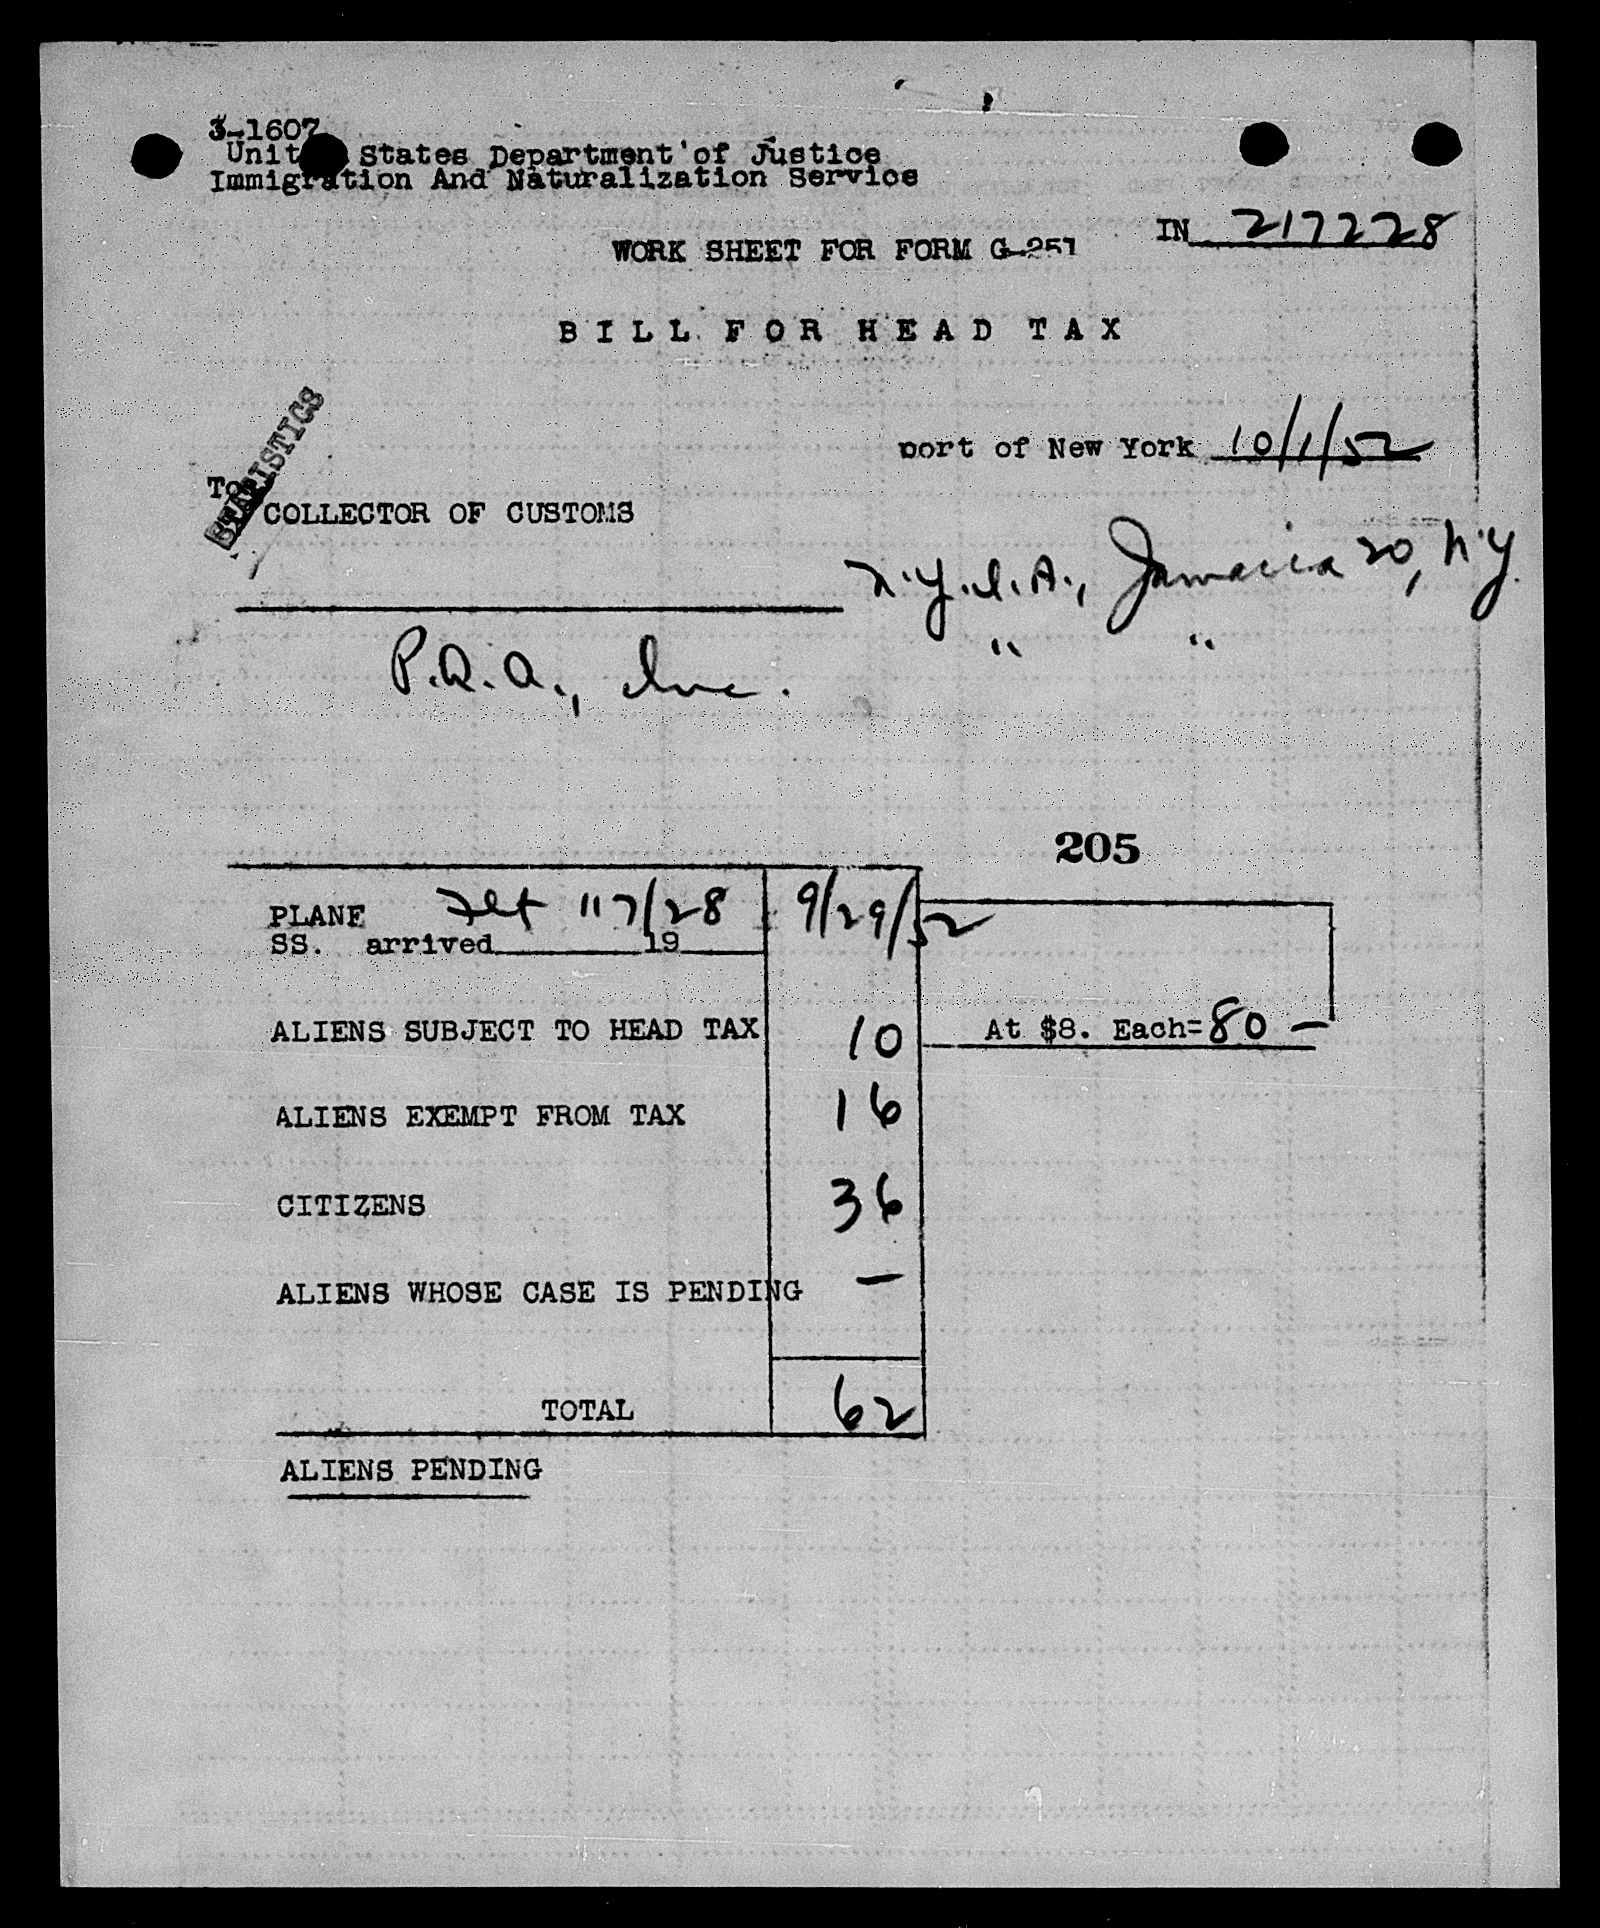 3-1607
United States Department of Justice
Immigration And Naturalization Service
IN 217228
WORK SHEET FOR FORM G-251
BILL FOR HEAD TAX
STATISTICS
port of New York 10/1/52
To
COLLECTOR OF CUSTOMS
N.Y.I.A., Jamaica 20, N.Y.
" "
P.A.A., Inc.
205
PLANE Flt 117/28 9/29/52
SS. arrived 19
ALIENS SUBJECT TO HEAD TAX 10 At $8. Each= 80 —
ALIENS EXEMPT FROM TAX 16
CITIZENS 36
ALIENS WHOSE CASE IS PENDING —
TOTAL 62
ALIENS PENDING